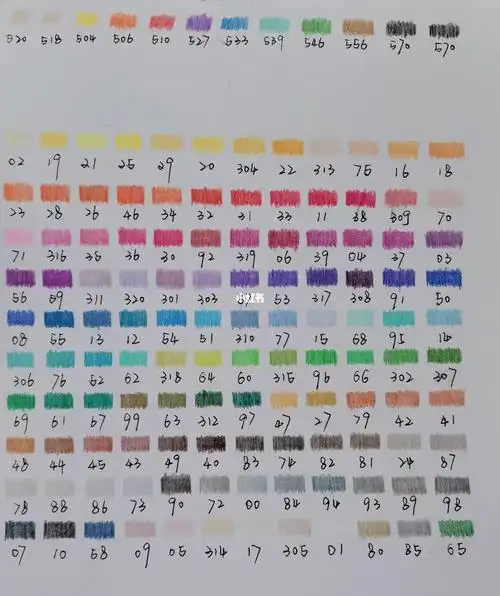 520 518 504 506 510 527 533 539 546 556 570 570
02 19 21 25 29 20 304 22 313 75 16 18
23 28 26 46 34 32 31 33 11 38 309 70
71 316 35 36 30 92 319 06 39 04 37 03
56 59 311 320 301 303 53 317 308 91 50
小红书
08 55 13 12 54 51 310 77 15 68 95 14
306 76 52 62 318 64 60 315 96 66 302 307
69 61 67 99 63 312 97 47 27 79 42 41
48 44 45 43 49 40 83 74 82 81 24 87
78 88 86 73 90 72 00 84 94 93 89 98
07 10 58 09 05 314 17 305 01 80 85 65